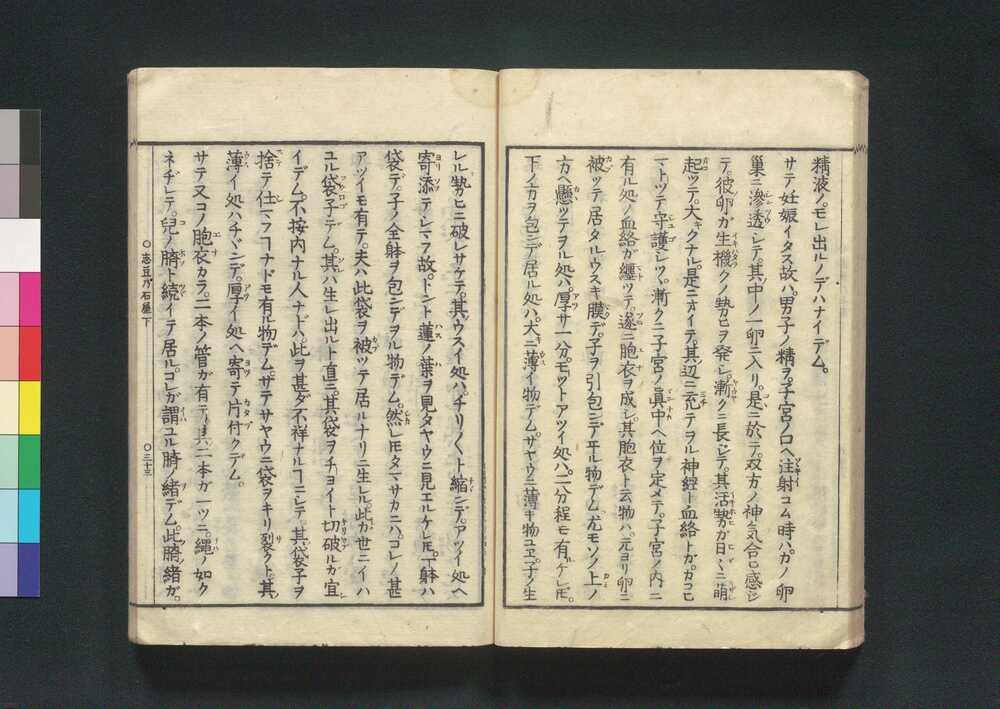 精液ノモレ出ルノデハナイデム。
サテ妊娠イタス故ハ。男子ノ精ヲ子宮ノ口ヘ注射コム時ハ。カノ卵
巣ニ滲透シテ。其中ノ一卵ニ入リ。是ニ於テ。双方ノ神気合ヒ感ジ
テ。彼卵ガ生機クノ勢ヒヲ発シ。漸クニ長ジテ。其活勢ガ日々ニ萌
起ツテ。大キクナル。是ニオイテ。其辺ニ充テヲル神経ト血絡トガ。カコヒ
マトツテ守護シツヽ。漸クニ子宮ノ真中ヘ位ヲ定メテ。子宮ノ内ニ
有ル処ノ血絡ガ纏ツテ。遂ニ胞衣ヲ成シ。其胞衣ト云物ハ。元ヨリ卵ニ
被ツテ居タルウスキ膜デ。子ヲ引包ンデ平ル物デム。尤モソノ上ノ
方ヘ懸ツテヲル処ハ。厚サ一分。モツトアツイ処ハ。二分程モ有ルケレ𪜈。
下ノカヲ包ンデ居ル処ハ。大キニ薄イ物デム。サヤウニ薄キ物ユヱ。子ノ生
レル勢ヒニ破レサケテ。其ウスイ処ハ。チリ〳〵ト縮ンデ。アツイ処ヘ
寄添テシマフ故。トント蓮ノ葉ヲ見タヤウニ見エルケレ𪜈。下躰ハ
袋デ。子ノ全躰ヲ包ンデヲル物デム。然レ𪜈タマサカニハ。コレノ甚
アツイモ有テ。夫ハ此袋ヲ被ツテ居ルナリニ生レル。此ガ世ニイハ
ユル袋子デム。其ハ生レ出ルト直ニ。其袋ヲチヨイト切破ルガ宜
イデム。不按内ナル人ナドハ。此ヲ甚ダ不祥ナルヿニシテ。其袋子ヲ
捨テ仕マフヿナドモ有ル物デム。サテサヤウニ袋ヲキリ裂クト。其
薄イ処ハチヾンデ。厚イ処ヘ寄テ片付クデム。
サテ又コノ胞衣カラ。二本ノ管ガ有テ。其二本ガ一ツニ。縄ノ如ク
ネヂレテ。児ノ臍ト続イテ居ル。コレガ謂ユル臍ノ緒デム。此臍緒ガ。
○志豆乃石屋下
○三十三